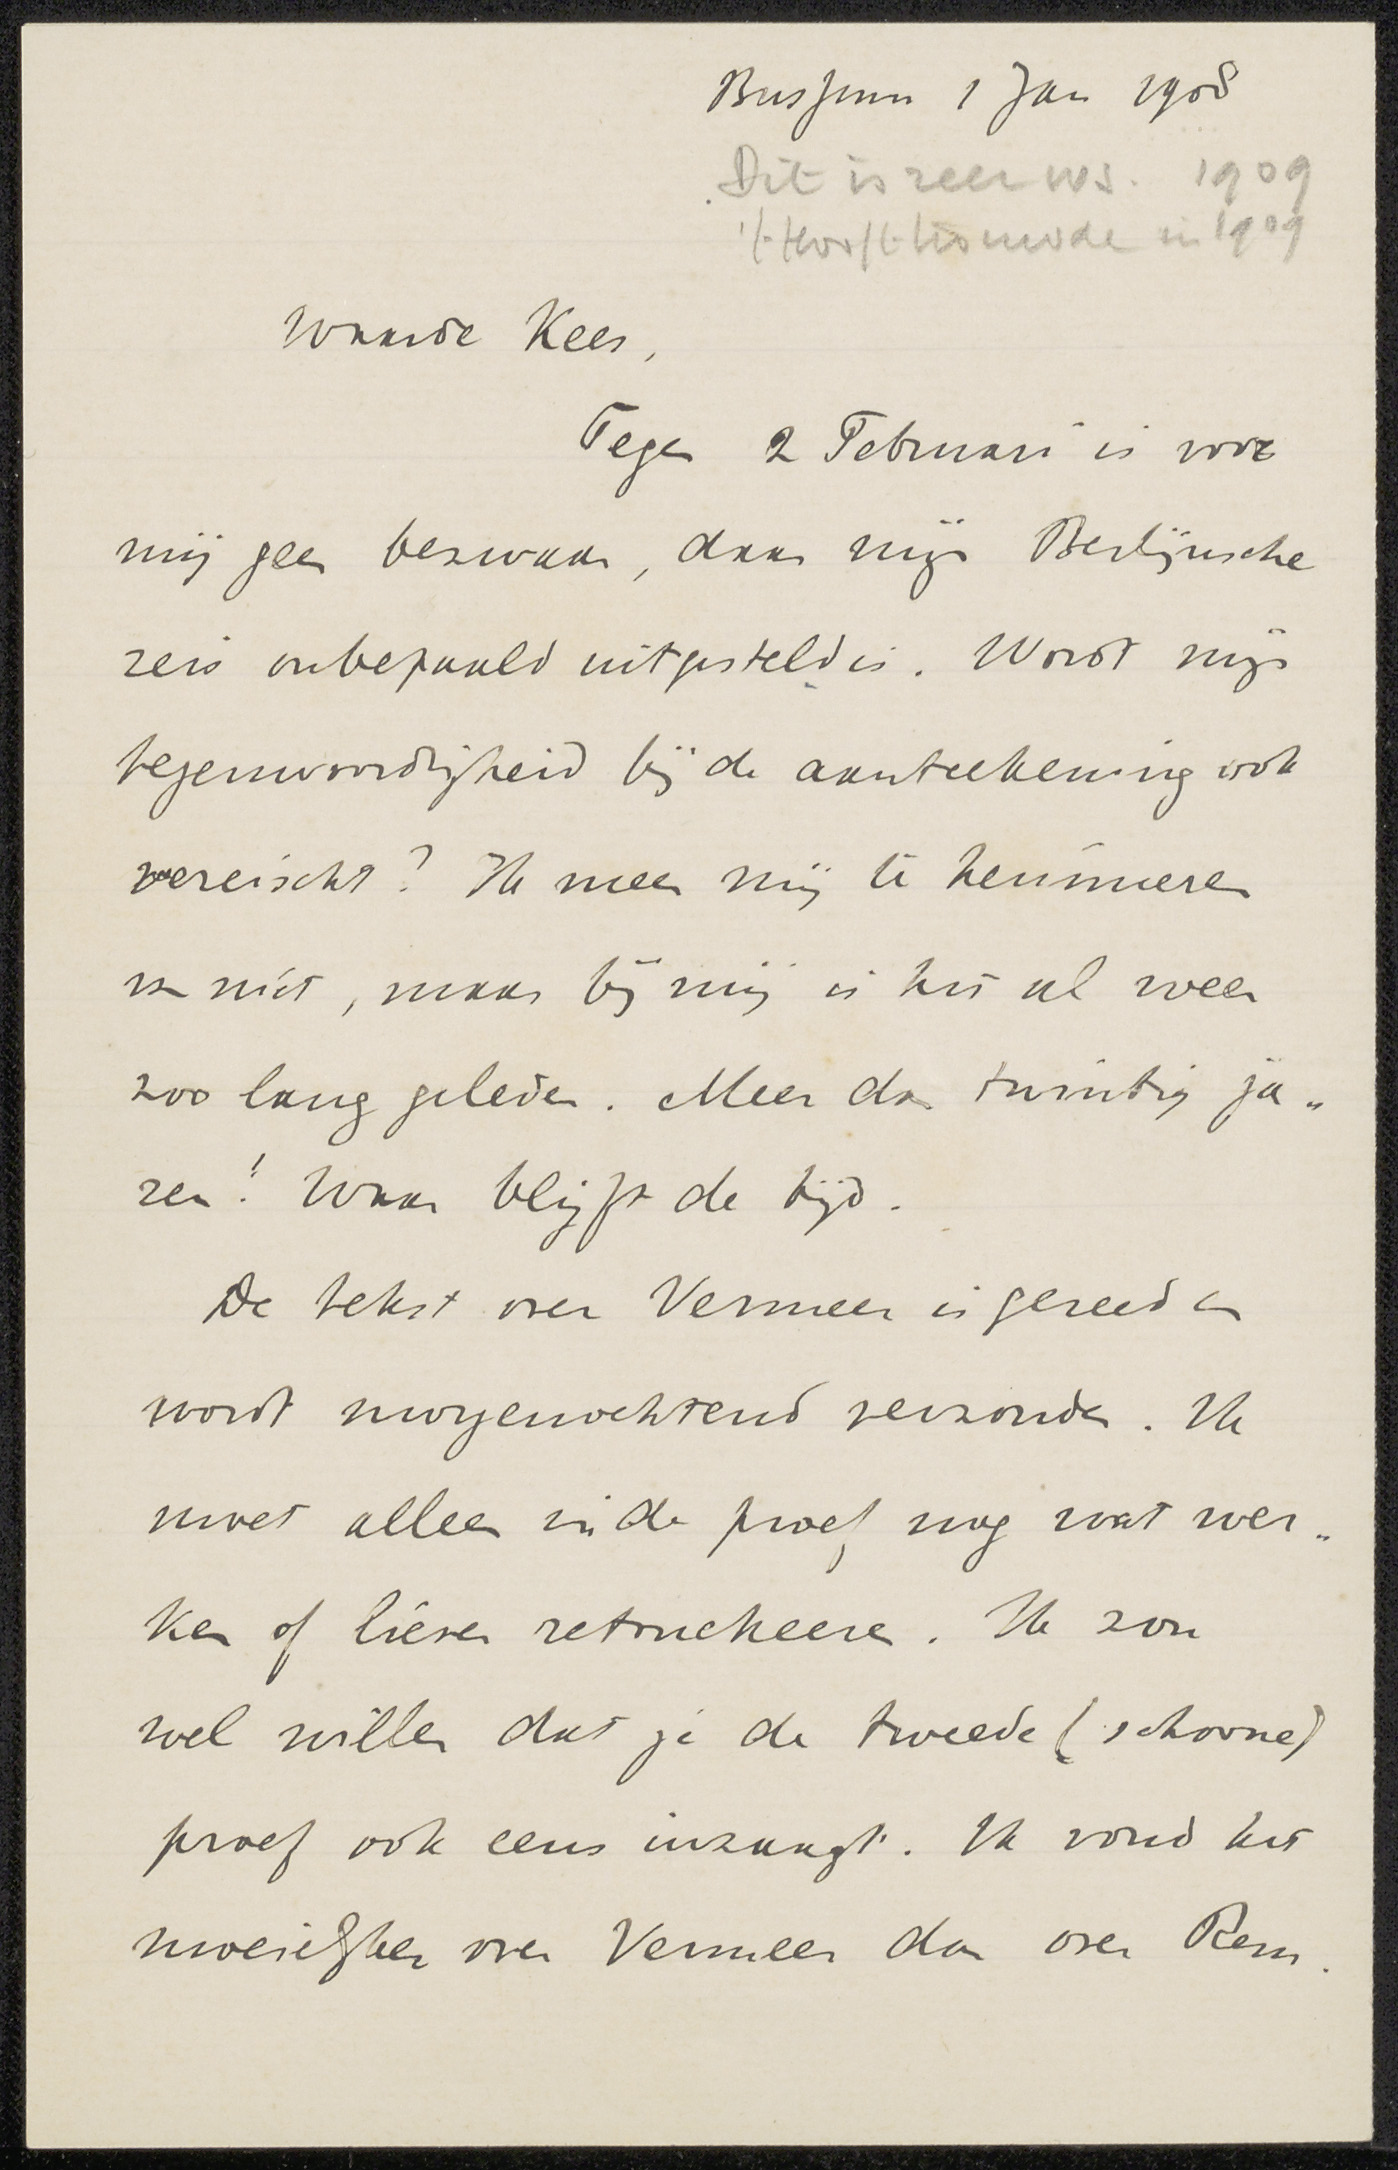 Bussum 1 Jan 1908
Dit is zeer ws. 1909
in 1909
Waarde Kees,
Tegen 2 Februari is voor
mij geen bezwaar, daar mijn Berlijnsche
reis onbepaald uitgesteld is. Wordt mijn
tegenwoordigheid bij de aanteekening ook
vereischt? Ik meen mij te herinneren
van niet, maar bij mij is het al weer
zoo lang geleden. Meer dan twintig ja„
ren! Waar blijft de tijd.
De tekst over Vermeer is gereed en
wordt morgenochtend verzonden. Ik
moet alleen in de proef nog wat wer„
ken of liever retoucheeren. Ik zou
wel willen dat je de tweede (schoone)
proef ook eens inzaagt. Ik vond het
moeielijker over Vermeer dan over Rem.